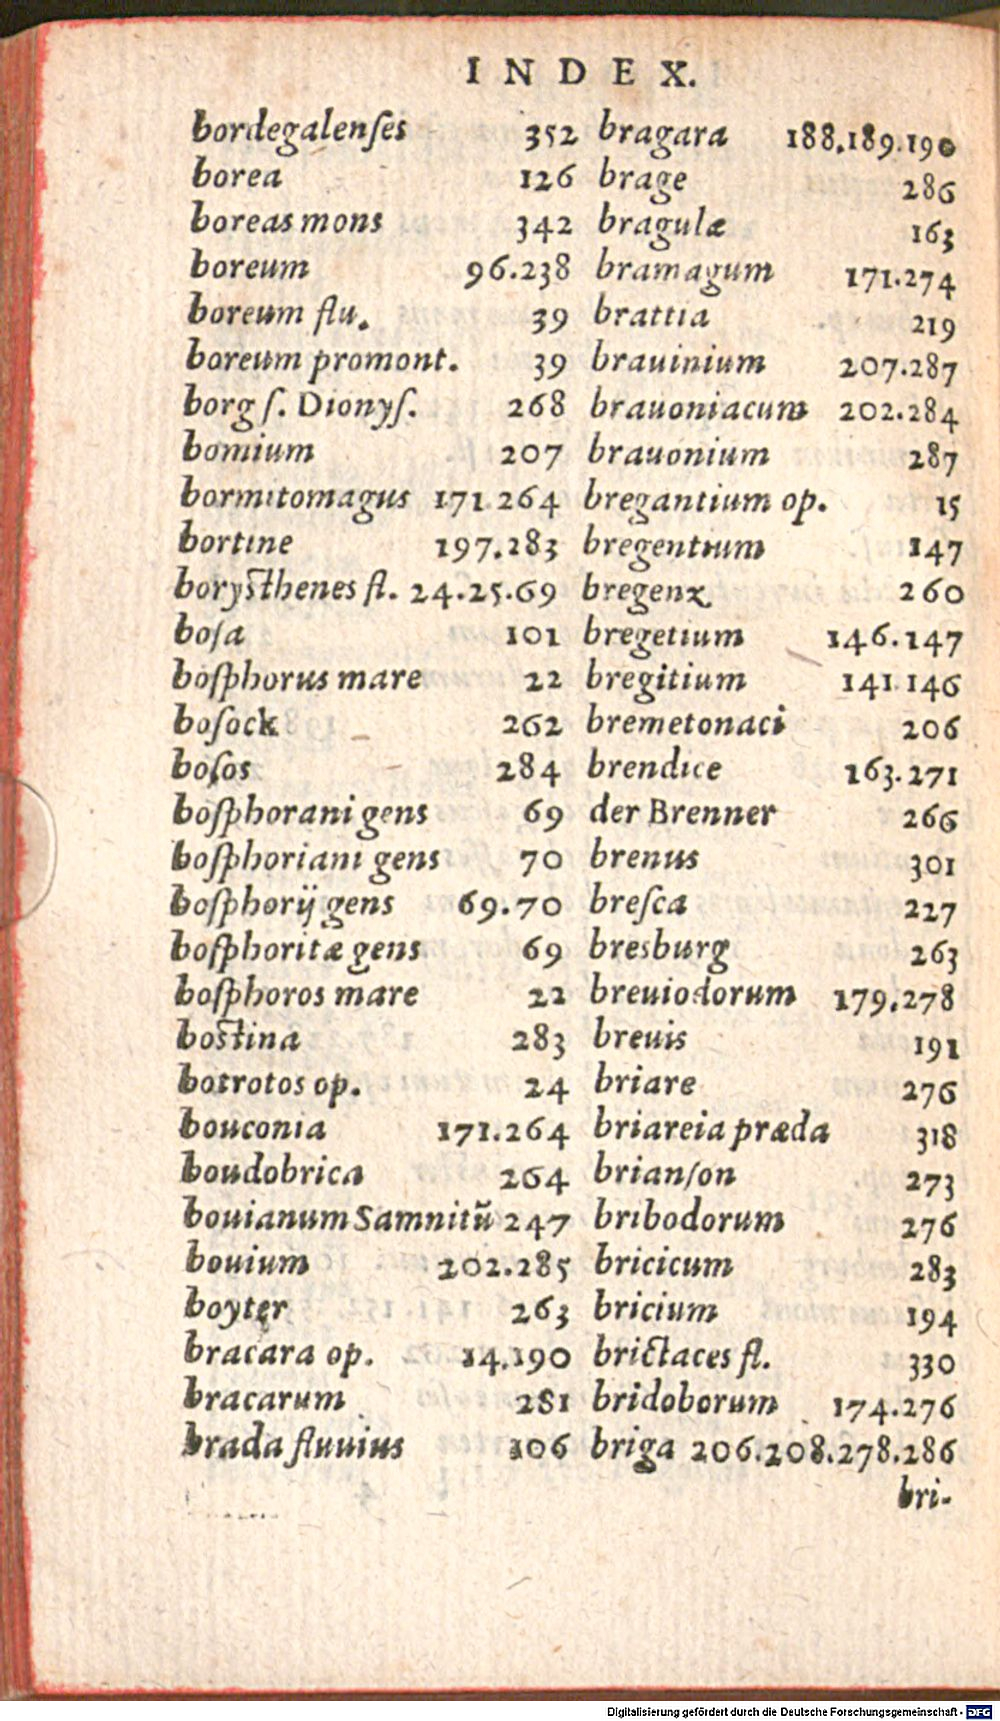 INDEX.
bordegalenſes 352
borea 126
boreas mons 342
boreum 96.238
boreum flu. 39
boreum promont. 39
borg ſ. Dionyſ. 268
bomium 207
bormitomagus 171.264
bortine 197.283
boryſthenes fl. 24.25.69
boſa 101
boſphorus mare 22
boſock 262
boſos 284
boſphorani gens 69
boſphoriani gens 70
boſphorij gens 69.70
boſphoritæ gens 69
boſphoros mare 22
boſtina 283
botrotos op. 24
bouconia 171.264
boudobrica 264
bouianum Samnitũ 247
bouium 202.285
boyter 263
bracara op. 14.190
bracarum 281
brada fluuius 106
bragara 188.189.190
brage 286
bragulæ 163
bramagum 171.274
brattia 219
brauinium 207.287
brauoniacum 202.284
brauonium 287
bregantium op. 15
bregentium 147
bregenz 260
bregetium 146.147
bregitium 141.146
bremetonaci 206
brendice 163.271
der Brenner 266
brenus 301
breſca 227
bresburg 263
breuiodorum 179.278
breuis 191
briare 276
briareia præda 318
brianſon 273
bribodorum 276
bricicum 283
bricium 194
brictaces fl. 330
bridoborum 174.276
briga 206.208.278.286
bri-
Digitalisierung gefördert durch die Deutsche Forschungsgemeinschaft - DFG